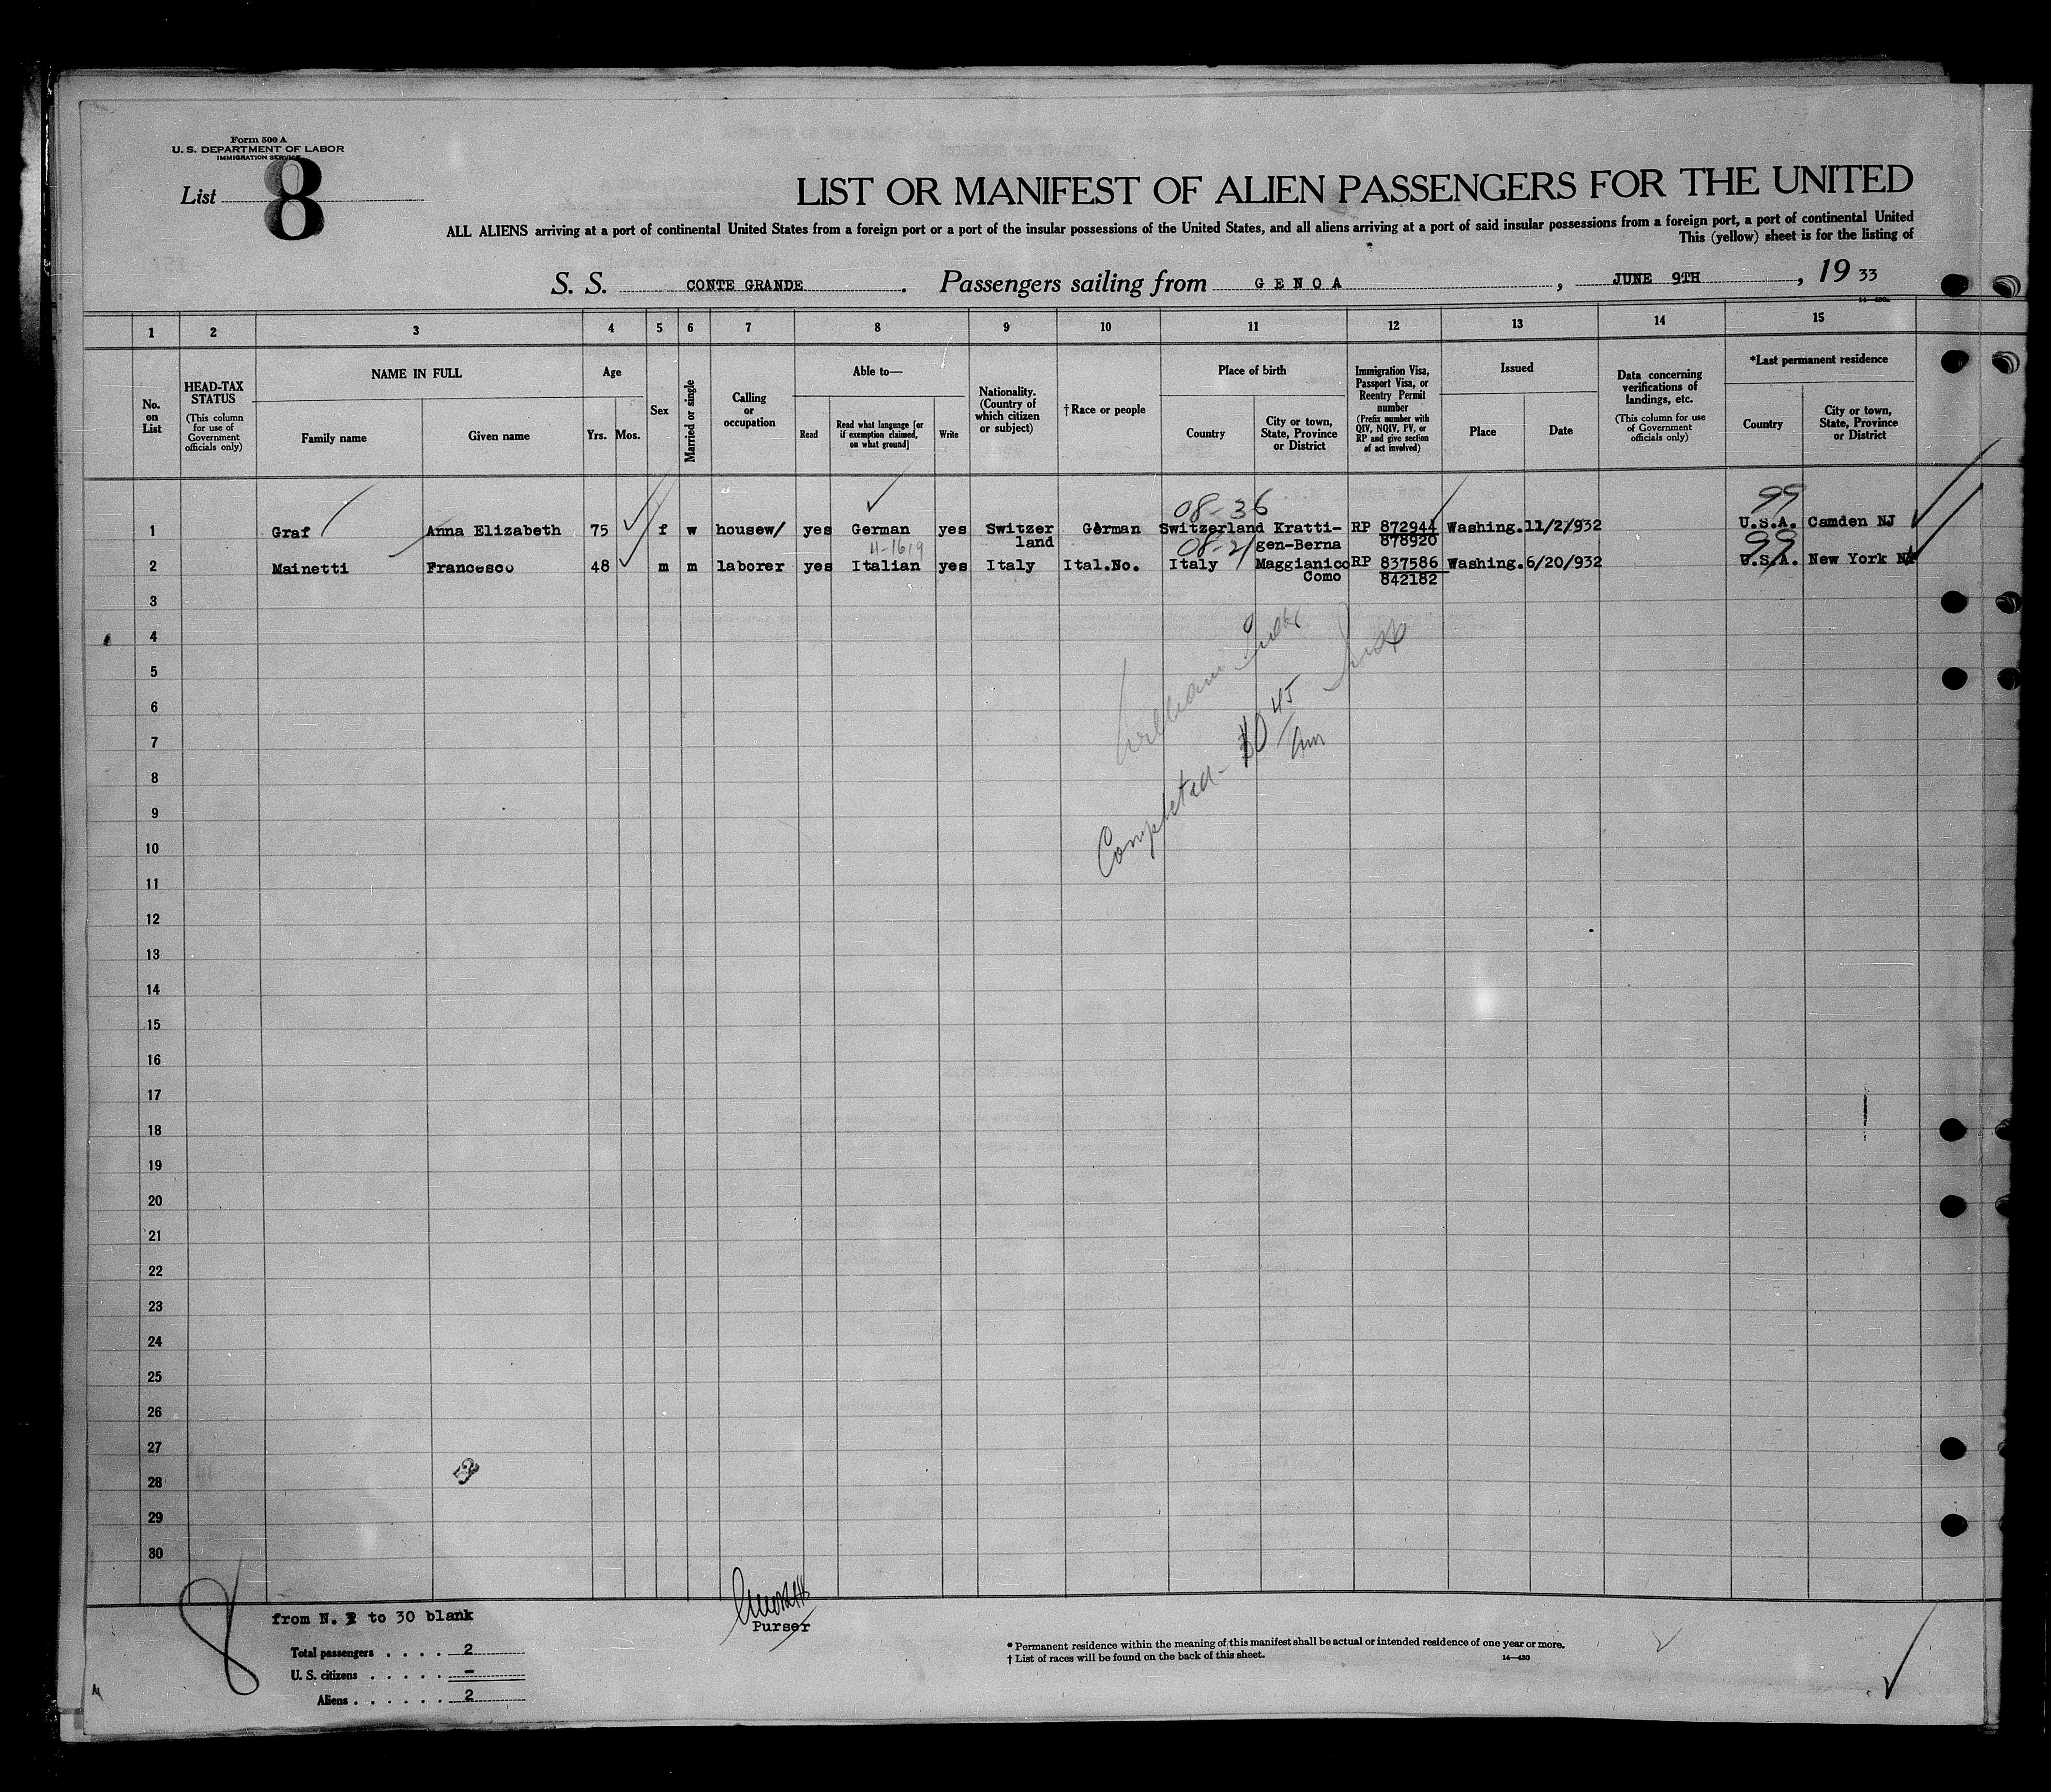 Form 500 A
U. S. DEPARTMENT OF LABOR
IMMIGRATION SERVICE
List 8
LIST OR MANIFEST OF ALIEN PASSENGERS FOR THE UNITED
ALL ALIENS arriving at a port of continental United States from a foreign port or a port of the insular possessions of the United States, and all aliens arriving at a port of said insular possessions from a foreign port, a port of continental United
This (yellow) sheet is for the listing of
S. S. CONTE GRANDE. Passengers sailing from GENOA, JUNE 9TH, 19 33
1 2 3 4 5 6 7 8 9 10 11 12 13 14 15
No. on List
HEAD-TAX STATUS
(This column for use of Government officials only)
NAME IN FULL
Family name
Given name
Age
Yrs. Mos.
Sex
Married or single
Calling or occupation
Able to—
Read
Read what language [or if exemption claimed, on what ground]
Write
Nationality. (Country of which citizen or subject)
†Race or people
Place of birth
Country
City or town, State, Province or District
Immigration Visa, Passport Visa, or Reentry Permit number
(Prefix number with QIV, NQIV, PV, or RP and give section of act involved)
Issued
Place
Date
Data concerning verifications of landings, etc.
(This column for use of Government officials only)
*Last permanent residence
Country
City or town, State, Province or District
08-36 99
1 Graf Anna Elizabeth 75 f w housew/ yes German yes Switzer German Switzerland Kratti- RP 872944 Washing. 11/2/932 U.S.A. Camden NJ
land gen-Berna 878920
08-21 99
2 Mainetti Francesco 48 m m laborer yes Italian yes Italy Ital.No. Italy Maggianico RP 837586 Washing. 6/20/932 U.S.A. New York NY
Como 842182
3
4
5
6
7
8
9
10
11
12
13
14
15
16
17
18
19
20
21
22
23
24
25
26
27
28
29
30
William
Completed - 10 45 am
8
from N. to 30 blank
Purser
Total passengers . . . . 2
U. S. citizens . . . . . -
Aliens . . . . . . 2
* Permanent residence within the meaning of this manifest shall be actual or intended residence of one year or more.
† List of races will be found on the back of this sheet.
14—430